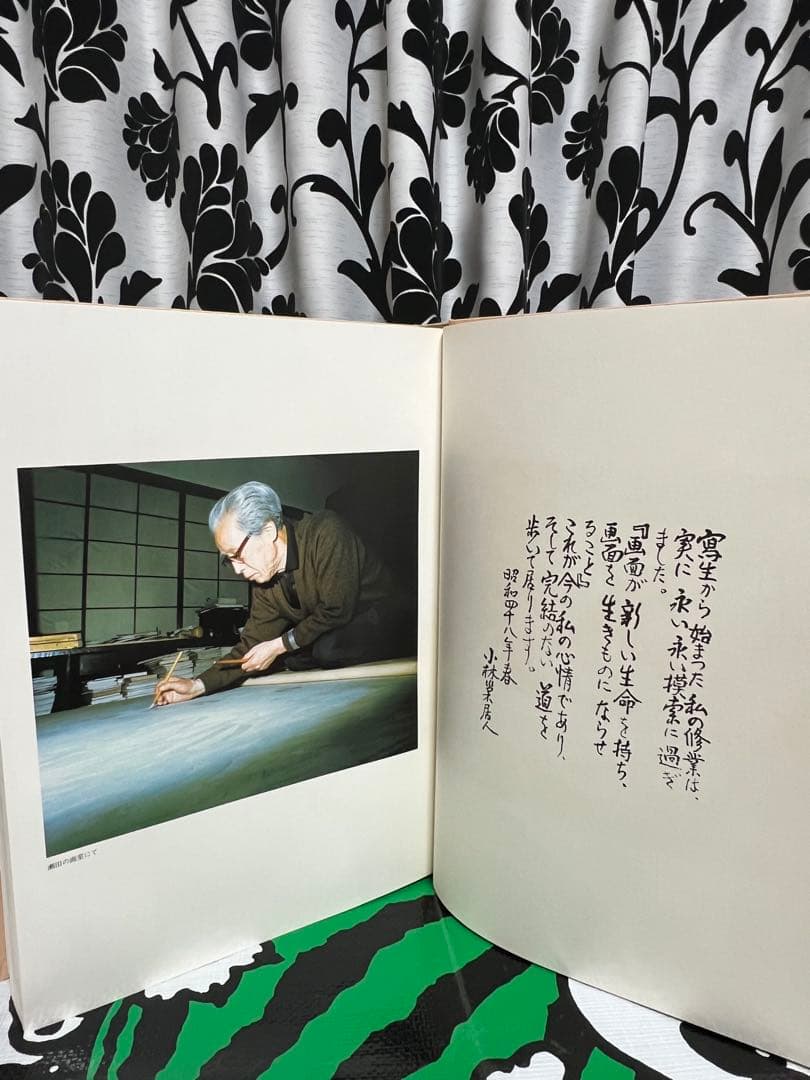 寫生から始まった私の修業は、
実に永い永い摸索に過ぎ
ました。
『画面が新しい生命を持ち、
画面を生きものにならせ
ること』
これが今の私の心情であり、
そして完結のない道を
歩いて居ります。
昭和四十八年春
小林巣居人
瀬田の画室にて